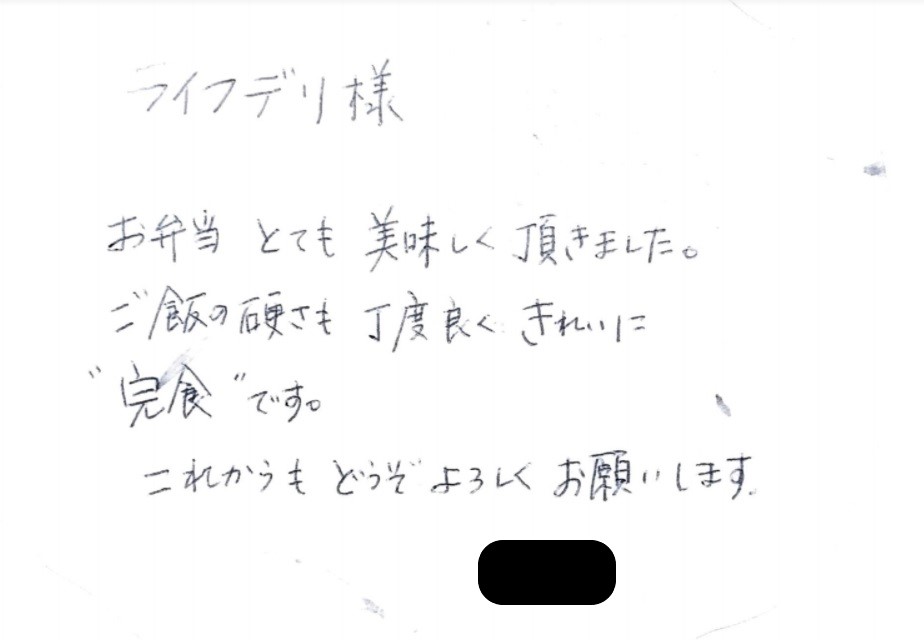 ライフデリ様
お弁当 とても 美味しく 頂きました。
ご飯の硬さも 丁度良く きれいに
"完食"です。
これからも どうぞ よろしく お願いします.